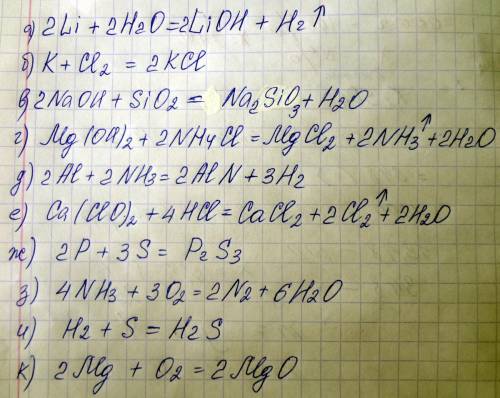 а) 2Li + 2H₂O = 2LiOH + H₂↑
б) K + Cl₂ = 2KCl
в) 2NaOH + SiO₂ = Na₂SiO₃ + H₂O
г) Mg(OH)₂ + 2NH₄Cl = MgCl₂ + 2NH₃↑ + 2H₂O
д) 2Al + 2NH₃ = 2AlN + 3H₂
е) Ca(ClO)₂ + 4HCl = CaCl₂ + 2Cl₂↑ + 2H₂O
ж) 2P + 3S = P₂S₃
з) 4NH₃ + 3O₂ = 2N₂ + 6H₂O
и) H₂ + S = H₂S
к) 2Mg + O₂ = 2MgO